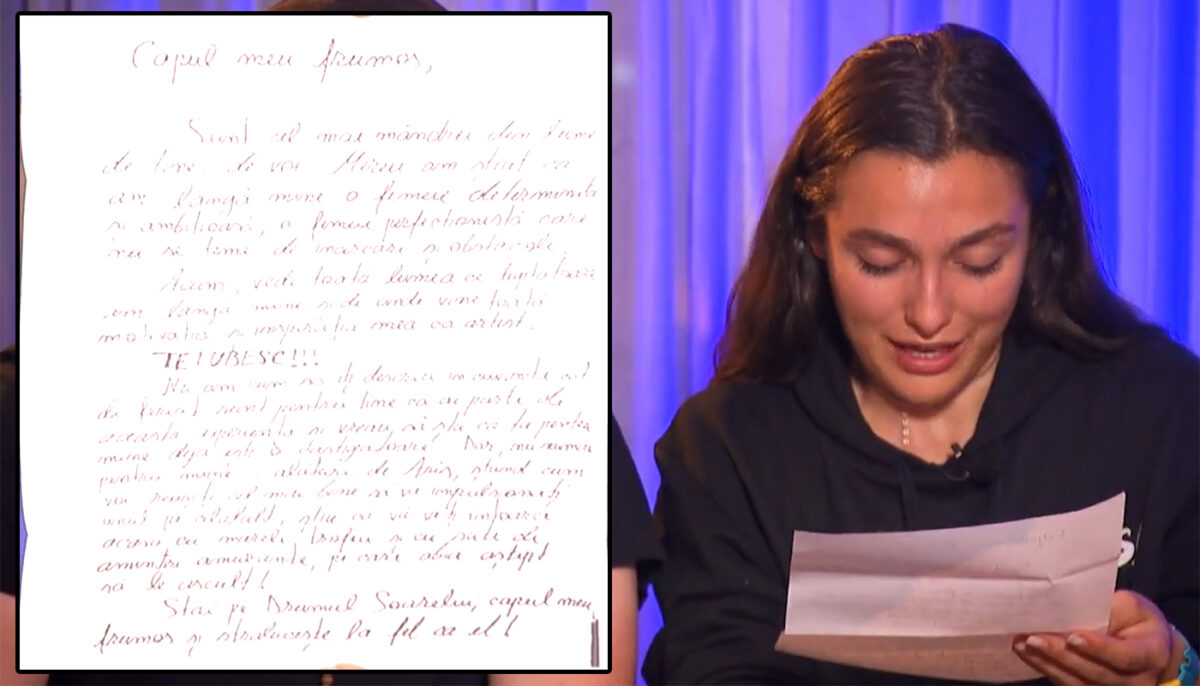 Capul meu frumos,
Sunt cel mai mândru din lume
de tine, de voi. Mereu am știut ca
am langă mine o femeie determinata
si ambitioasă, o femeie perfectionistă care
nu se teme de incercari și obstacole.
Acum, vede toată lumea ce luptatoare
am langa mine si de unde vine toată
motivatia si inspirația mea ca artist.
TE IUBESC!!!
Nu am cum sa iți descriu in cuvinte cat
de fericit sunt pentru tine ca ai parte de
aceasta experiență si vreau să știi ca tu pentru
mine deja ești o câștigatoare. Dar, nu numai
pentru mine alaturi de Aris, știind cum
voi reușiți cel mai bine să va impulsionați
unul pe celalalt, știu că vă veți intoarce
acasa cu marele trofeu si cu sute de
amintiri amuzante, pe care abia aștept
sa le ascult!
Stai pe Drumul Soarelui, capul meu
frumos și straluceste la fel ca el!